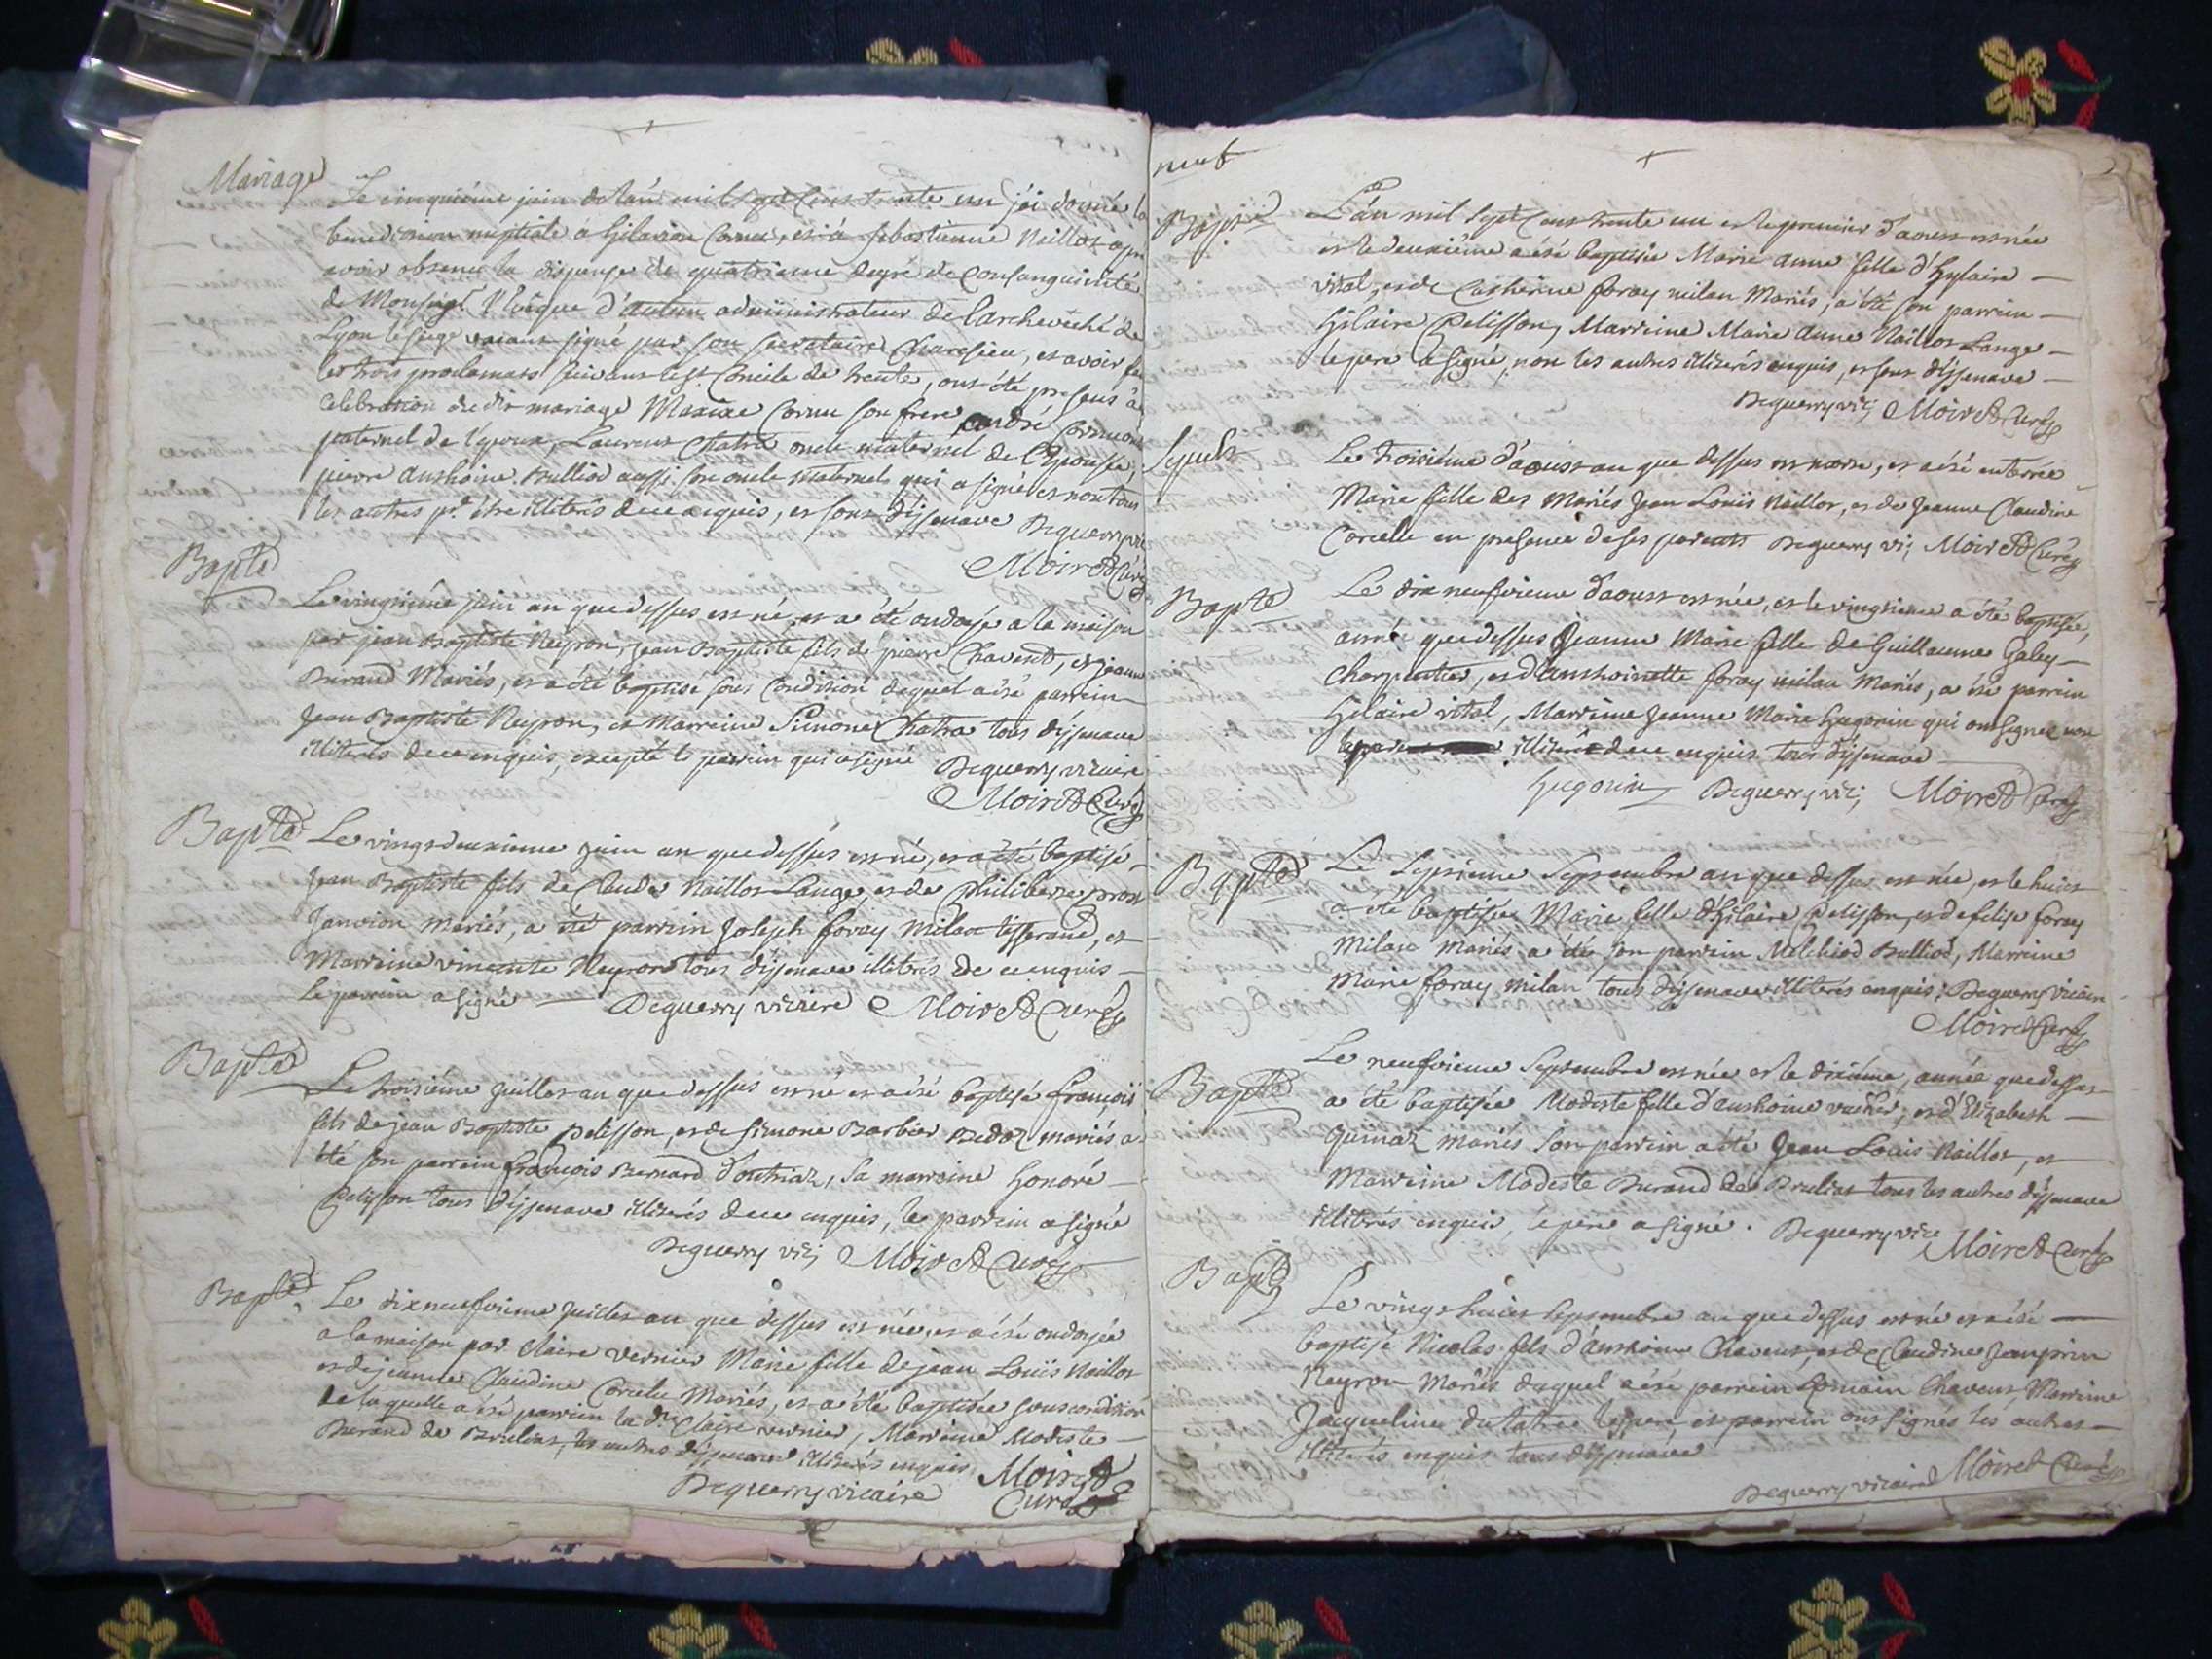 Mariage
Le cinquiéme juin de l'an mil sept cens trente un j'ai donné la
benediction nuptiale à hilarion Cornu, et à sebastienne Naillot apr
avoir obtenu la dispense de quatrieme degré de consanguinité
de Monseigr l'Evêque d'autun administrateur de l'archevêché de
Lyon le siege vacant signé par son secretaire, et avoir
les trois proclamats suivant le st. Concile de trente, ont été presens à
celebration du dit mariage Maxime Cornu son frere andré Cornu
paternel de l'epoux, Laurent Chatra oncle maternel de l'Epouse
pierre anthoine Bulliod aussi son oncle maternel qui a signé et non tous
les autres pr. être illiterés de ce enquis, et sont d'ijsenave Deguerry
Moiret Curé
Bapte
Le vingtiéme juin an que dessus est né, et a été ondoyé a la maison
par jean Baptiste Neyron, jean Baptiste fils de pierre Chavent, et jeanne
Durand Mariés, et a été baptisé sous condition duquel a été parrein
Jean Baptiste Neyron, et Marreine Simone Chatra tous d'ijsenave
illiterés de ce enquis, excepté le parrein qui a signé Deguerry vicaire
Moiret Curé
Bapte
Le vingt deuxieme juin an que dessus est né, et a été baptisé
Jean Baptiste fils de Claude Naillot Lange, et de Philiberte prost
Janvion mariés, a été parrein Joseph foray Milan tisserand, et
Marreine vincente Neyron tous d'ijsenave illiterés de ce enquis
Le parrein a signé Deguerry vicaire Moiret Curé
Bapte
Le troisiéme juillet an que dessus est né et a été baptisé françois
fils de jean Baptiste pelisson, et de simone Barbier Bedoz mariés a
été son parrein françois Bernard d'outriaz, Sa marreine honoré
Pelisson tous d'ijsenave illiterés de ce enquis, le parrein a signé
Deguerry vic; Moiret Curé
Bapte
Le dixneufvieme juillet an que dessus est née, et a été ondoyée
a la maison par Claire vernier Marie fille de jean Louïs Naillot
et de jeanne Claudine Corcelle Mariés, et a été baptisée sous condition
de laquelle a été parrein la dte Claire vernier, Marreine Modeste
Durand de Brulias, les autres d'ijsenave illiterés enquis, Moiret
Deguerry vicaire Curé
neuf
Bapte
L'an mil sept cens trente un et le premier d'aoust est née
et le deuxiéme a été baptisée Marie anne fille d'hylaire
vital, et de Catherine foray milan Mariés, a été son parrein
hilaire Pelisson, Marreine Marie anne Naillot Lange
le pere a signé, non les autres illiterés enquis, et sont d'ijsenave
Deguerry vic; Moiret Curé
Sepult
Le troisiéme d'aoust an que dessus est morte, et a été enterrée
Marie fille des mariés Jean Louïs Naillot, et de Jeanne Claudine
Corcelle en presence de ses parents Deguerry vic; Moiret Curé
Bapte
Le dix neufvieme d'aoust est née, et le vingtieme a été baptisée,
année que dessus Jeanne Marie fille de Guillaume Galey
Charpentier, et d'anthoinette foray milan Mariés, a été parrein
hilaire vital, Marreine Jeanne Marie Gregorin qui ont signé non
illiteré de ce enquis tous d'ijsenave
Gregorin Deguerry vic; Moiret Curé
Bapte
Le septiéme septembre an que dessus est née, et le huict
a été baptisée Marie fille d'hilaire Pelisson, et de felise foray
Milan Mariés, a été son parrein Melchiod Bulliod, Marreine
Marie foray milan tous d'ijsenave illiterés enquis; Deguerry vicaire
Moiret Curé
Bapte
Le neufvieme septembre est née et le dixiéme, année que dessus
a été baptisée Modeste fille d'anthoine vacher, et d'Elizabeth
quinat mariés son parrein a été Jean Louis Naillot, et
Marreine Modeste Durand de Brulias tous les autres d'ijsenave
illiterés enquis, le pere a signé. Deguerry vice Moiret Curé
Bapt
Le vingt huict septembre an que dessus est né et a été
baptisé Nicolas fils d'anthoine Chavent, et de Claudine
Neyron Mariés duquel a été parrein Romain Chavent, Marreine
Jacqueline le pere et parrein ont signés les autres
illiterés enquis tous d'ijsenave
Deguerry vicaire Moiret Curé